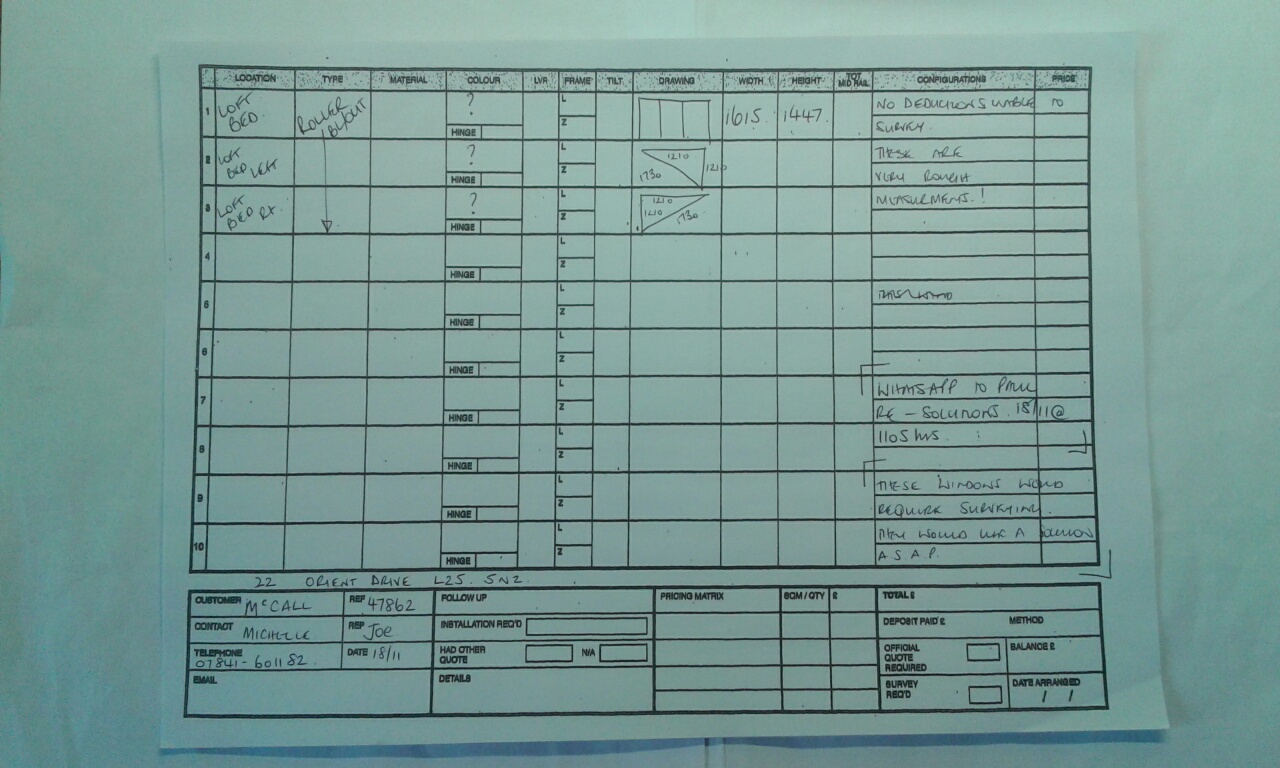 LOCATION TYPE MATERIAL COLOUR LVR FRAME TILT DRAWING WIDTH HEIGHT TOT MID RAIL CONFIGURATIONS PRICE
1 LOFT BED. ROLLER B/YOUT ? L Z HINGE 1615 1447 NO DEDUCTIONS UNABLE TO
SURVEY.
2 LOFT BED LEFT ? L Z HINGE 1210 1210 1730 THESE ARE
VERY ROUGH
3 LOFT BED RT. ? L Z HINGE 1210 1210 1730 MEASURMENTS!
4 L Z HINGE
5 L Z HINGE
6 L Z HINGE
7 L Z HINGE WHATSAPP TO PAUL
RE - SOLUTIONS. 18/11@
8 L Z HINGE 1105 hrs.
9 L Z HINGE THESE WINDOWS WOULD
REQUIRE SURVEYING.
10 L Z HINGE THEY WOULD LIKE A SOLUTION
A.S.A.P.
22 ORIENT DRIVE L25. 5NZ.
CUSTOMER McCALL REF 47862 FOLLOW UP PRICING MATRIX SQM / QTY £ TOTAL £
CONTACT MICHELLE REP JOE INSTALLATION REQ'D DEPOSIT PAID £ METHOD
TELEPHONE 07841-601182. DATE 18/11 HAD OTHER QUOTE N/A OFFICIAL QUOTE REQUIRED BALANCE £
EMAIL DETAILS SURVEY REQ'D DATE ARRANGED / /